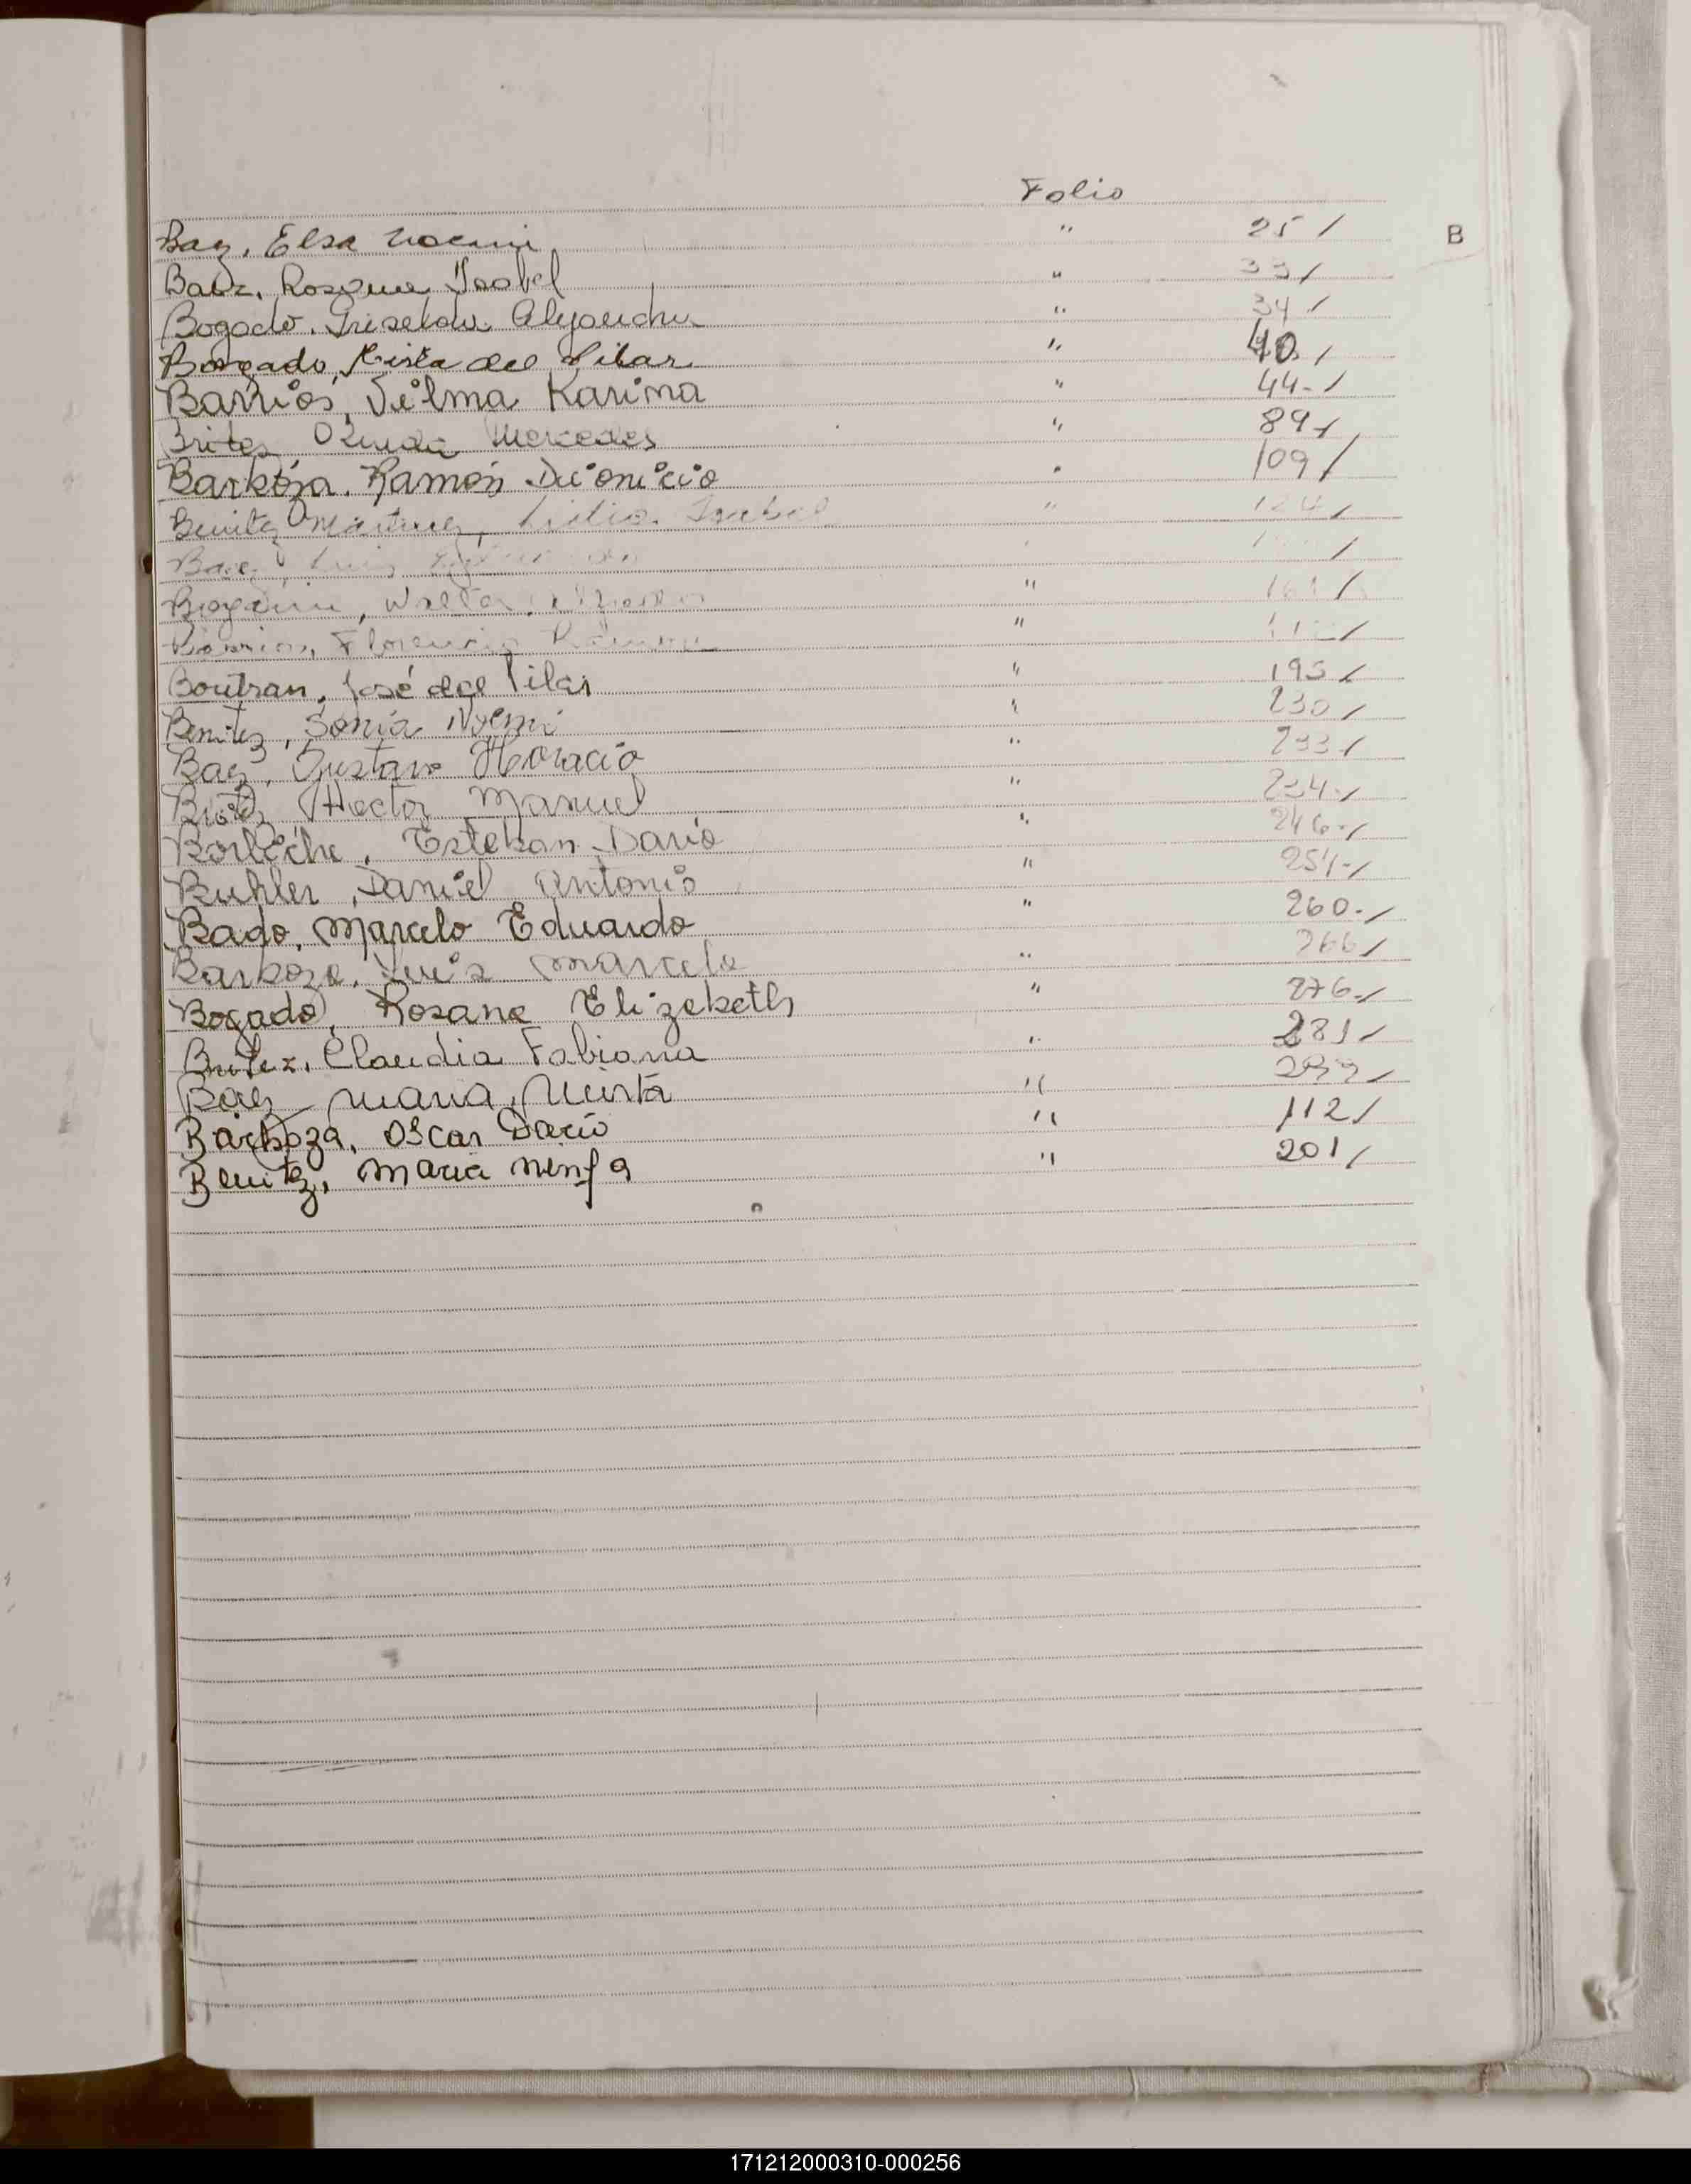 Folio
B
Baez, Elsa Noemi " 25/
Baez, Rosana Isabel " 33/
Bogado, Griselda Alejandra " 34/
Bogado, Mirta del Pilar " 40./
Barrios, Vilma Karina " 44-/
Britez, Olinda Mercedes " 89/
Barboza, Ramón Dionicio " 109/
Benitez Martinez, Lidia Isabel " 124/
Baez, Luis /
Walter, " 161/
Barrios, Florencio Ramon " /
Boutran, José del Pilar " 195/
Benitez, Sonia Noemi " 230/
Baez, Gustavo Horacio " 233/
Hector Manuel " 234-/
Esteban Dario " 246-/
Buhler, Daniel Antonio " 254-/
Bado, Marcelo Eduardo " 260-/
Barboza, Luis Marcelo " 266/
Bogado, Rosana Elizabeth " 276-/
Britez, Claudia Fabiana " 281/
Baez Maria Mirta " /
Barboza, Oscar Dario " 112/
Benitez, Maria Ninfa " 201/
171212000310-000256